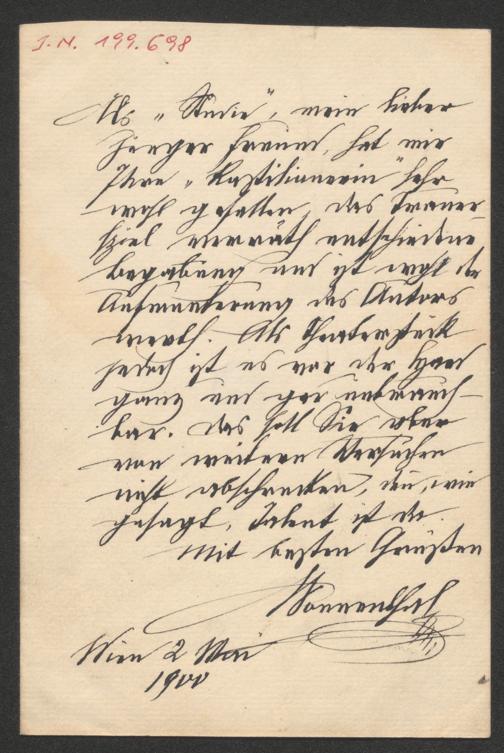 I.N. 199.698
Als „Studie", mein lieber
junger Freund, hat mir
Ihre „Kastilianerin" sehr
wohl gefallen, das Trauer
spiel verräth entschiedene
Begabung und ist wohl der
Aufmunterung des Autors
werth. Als Theaterstück
jedoch ist es vor der Hand
ganz und gar unbrauch-
bar. Das soll Sie aber
von weitern Versuchen
nicht abschrecken, den, wie
gesagt, Talent ist da.
Mit besten Grüßen
Sonnenthal
Wien 2 Mai
1900